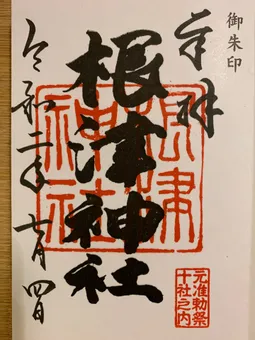 御朱印
奉拝
根津神社
根津神社
元准勅祭
十社之内
令和二年七月四日